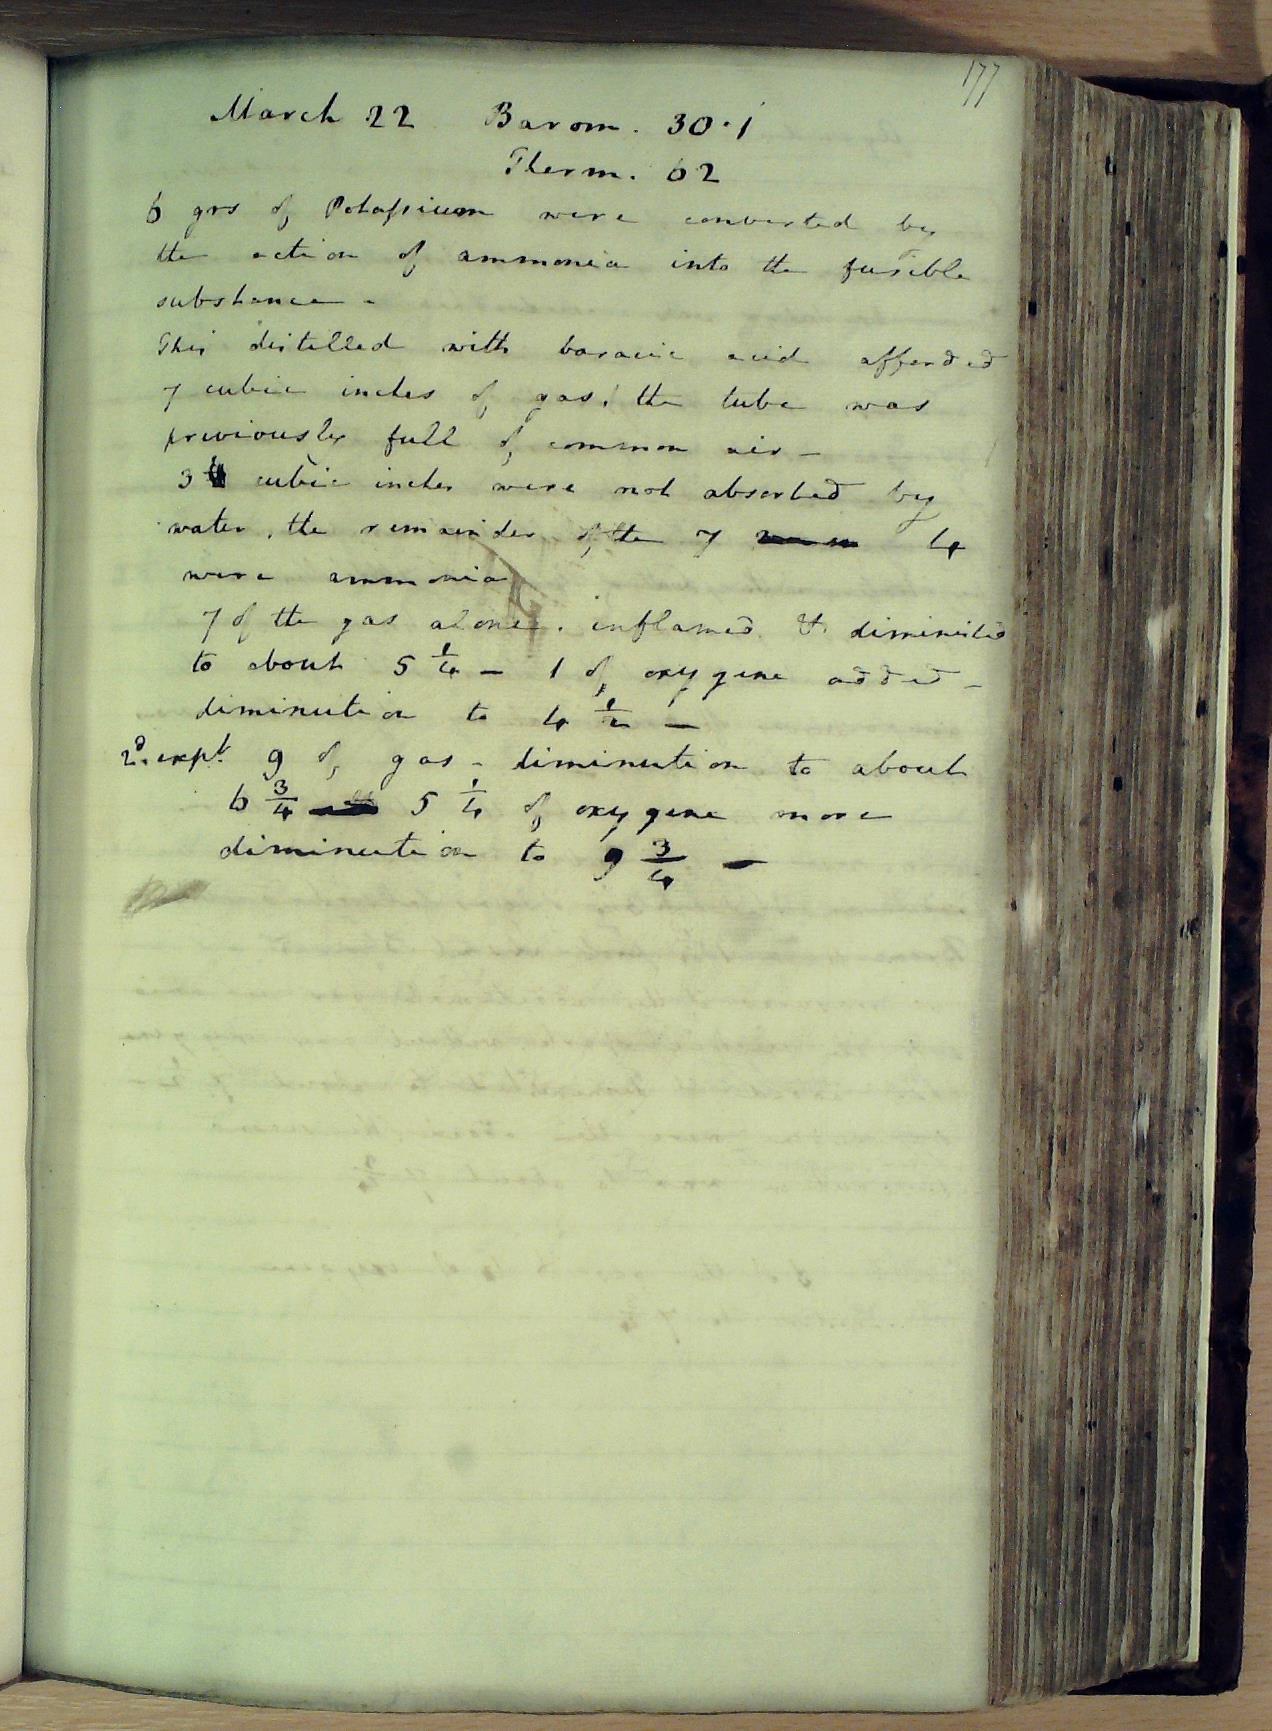 177
March 22 Barom. 30.1
Therm. 62
6 grs of Potassium were converted by
the action of ammonia into the fusible
substance -
This distilled with boracic acid afforded
7 cubic inches of gas, the tube was
previously full of common air -
3 cubic inches were not absorbed by
water, the remainder of the 7 4
were ammonia
7 of the gas alone. inflamed & diminished
to about 5 1/4 - 1 of oxygene added -
diminution to 4 1/2 -
2d. expt. 9 of gas - diminution to about
6 3/4 5 1/4 of oxygene more
diminution to 9 3/4 -